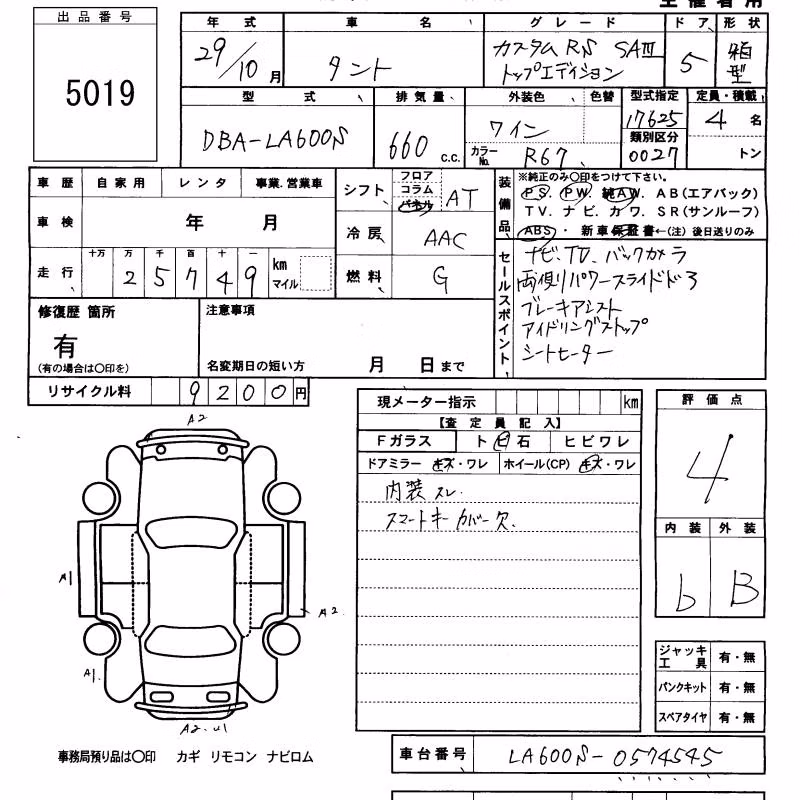 出品番号
5019
年式 車名 グレード ドア 形状
29/10月 タント カスタムRS SAⅢ トップエディション 5 箱型
型式 排気量 外装色 色替 型式指定 定員・積載
DBA-LA600S 660 c.c. ワイン 17625 4名
カラーNo. R67 類別区分 0027 トン
車歴 自家用 レンタ 事業.営業車
シフト フロア コラム パネル AT
装備品 ※純正のみ○印をつけて下さい。
PS. PW. 純AW. AB(エアバック)
TV. ナビ. カワ. SR(サンルーフ)
ABS・ 新車保証書←(注)後日送りのみ
車検 年 月
冷房 AAC
走行 十万 万 千 百 十 一
25749 km マイル
燃料 G
セールスポイント
ナビ、TV、バックカメラ
両側パワースライドドア
ブレーキアシスト
アイドリングストップ
シートヒーター
修復歴 箇所
有
(有の場合は○印を)
注意事項
名変期日の短い方 月 日まで
リサイクル料 9200円
現メーター指示 km
【査定員記入】
Fガラス ト ビ 石 ヒビワレ
ドアミラー キズ・ワレ ホイール(CP) キズ・ワレ
内装スレ.
スマートキーカバー欠.
評価点
4
内装 外装
b B
A2
A1
A2
A1
A2.U1
ジャッキ工具 有・無
パンクキット 有・無
スペアタイヤ 有・無
事務局預り品は○印 カギ リモコン ナビロム
車台番号 LA600S-0574545